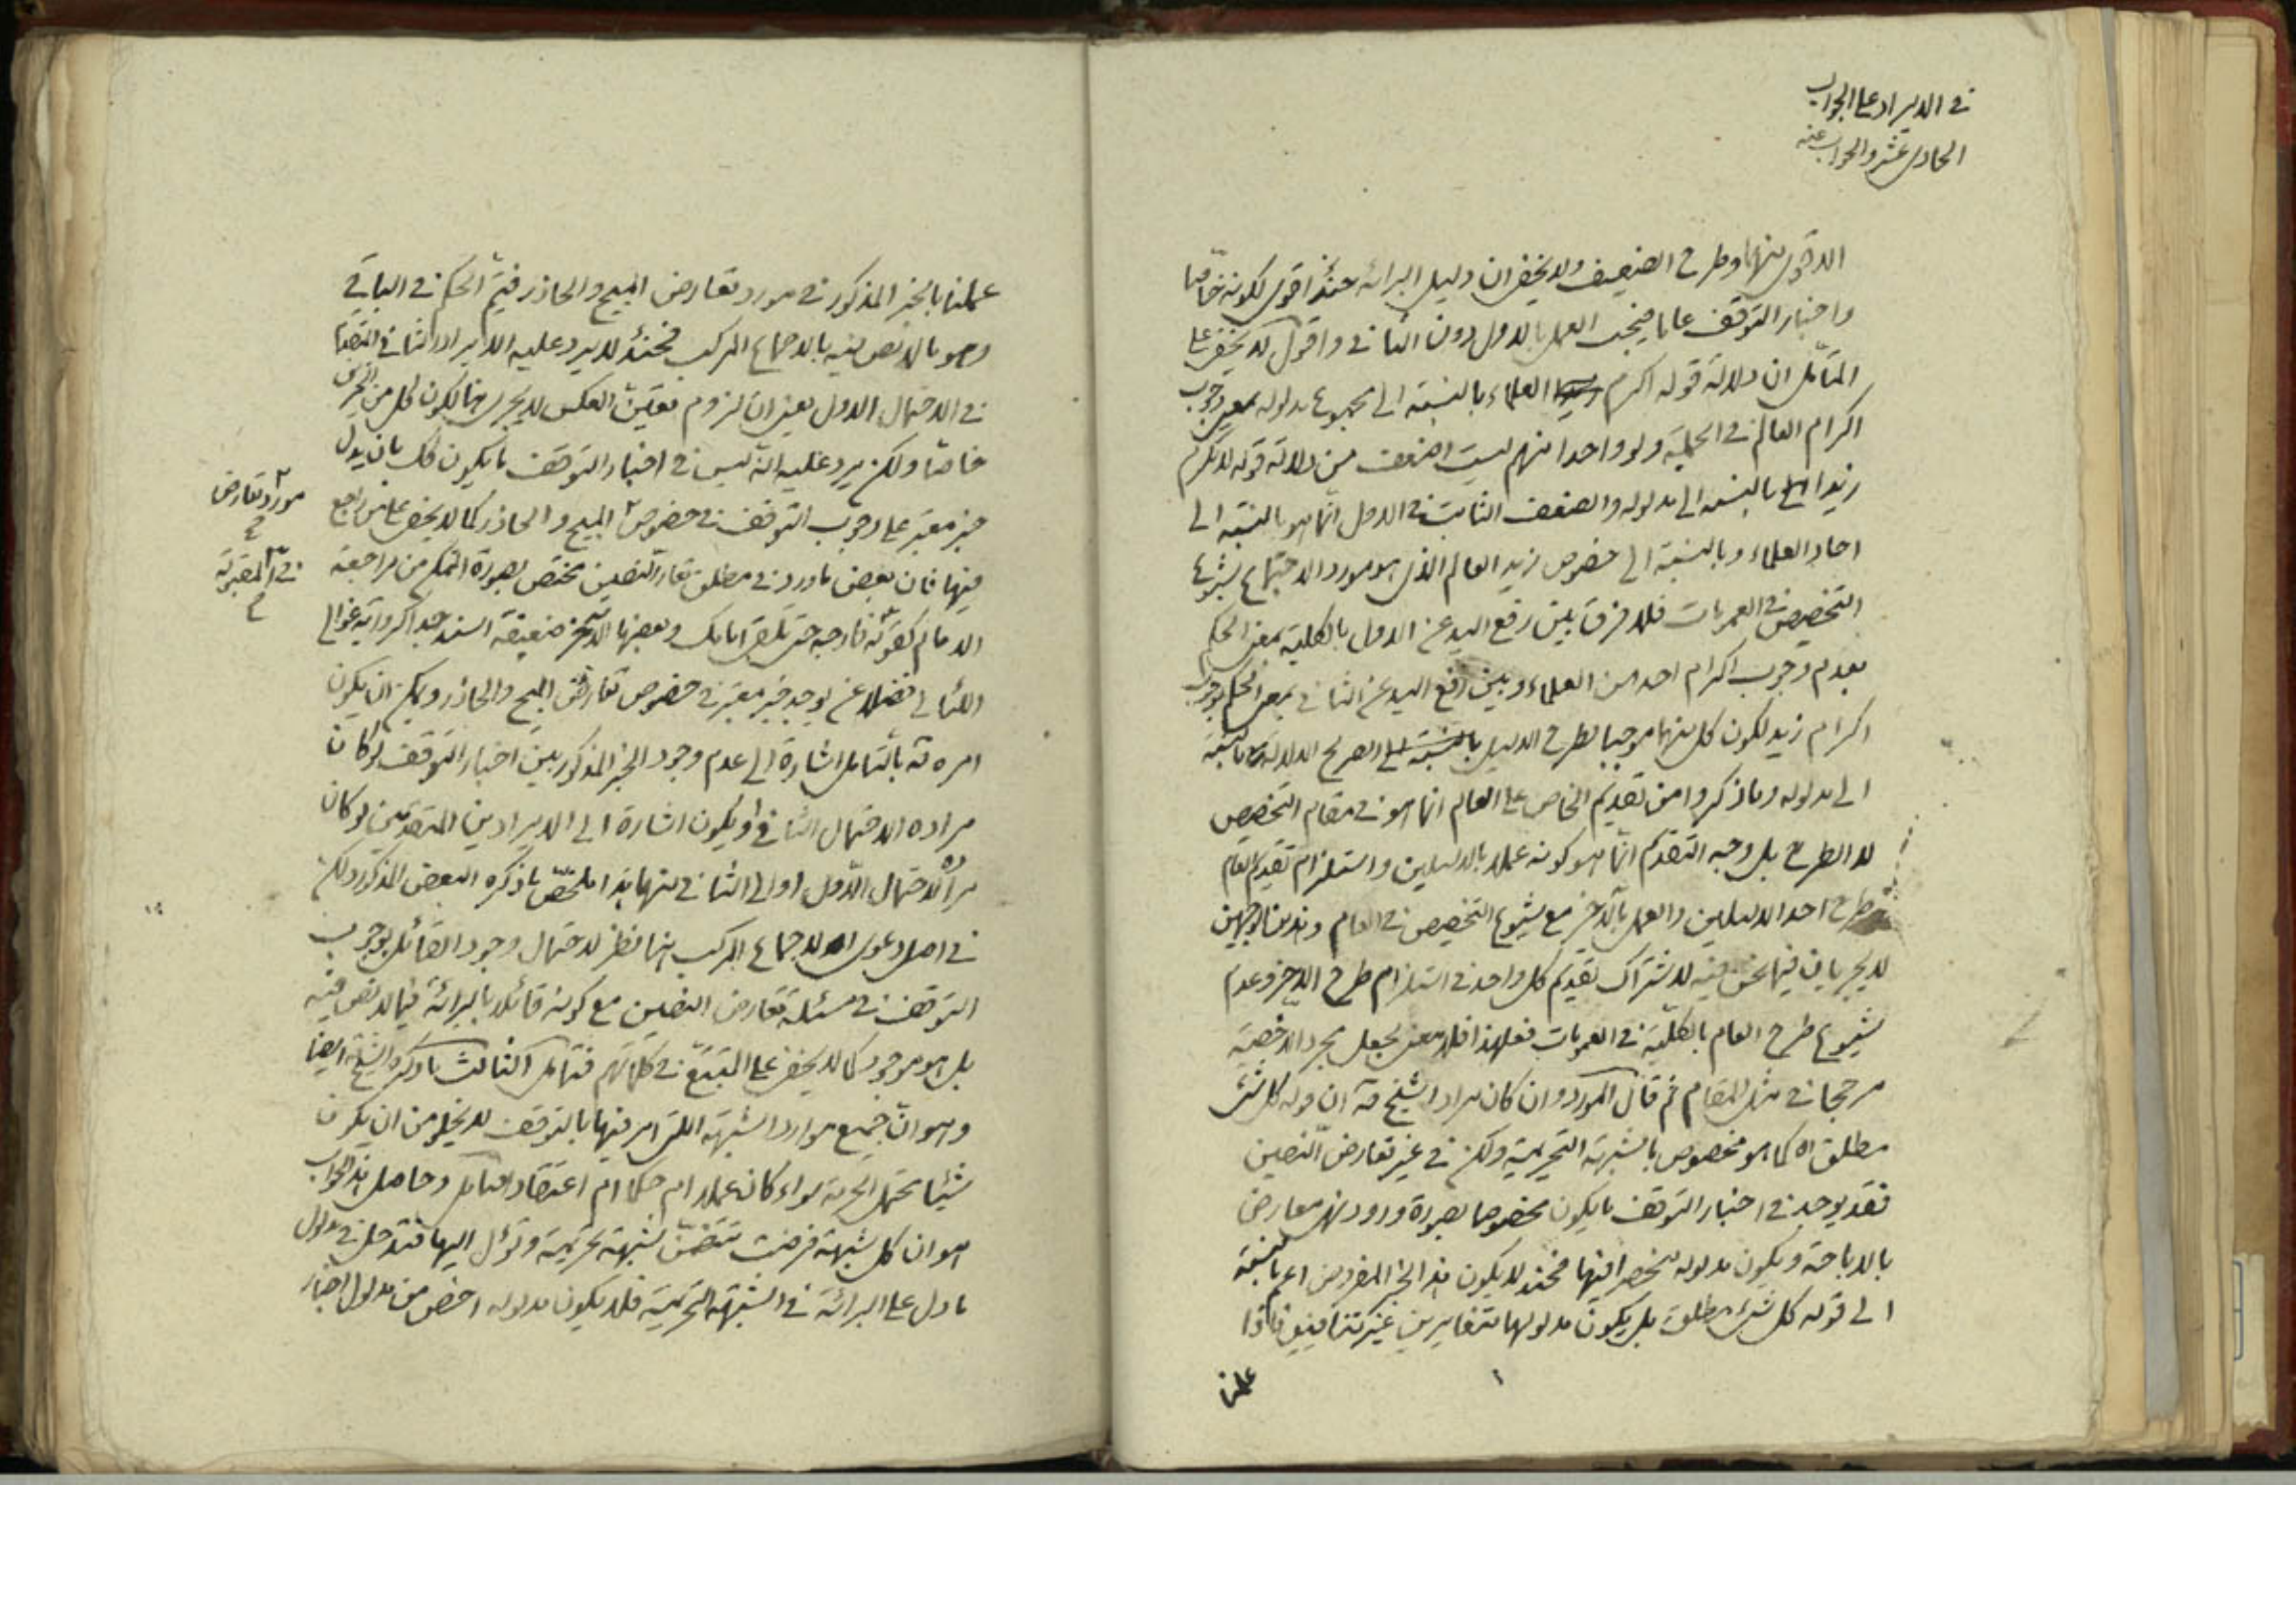 في الايراد على الجواب
الحادي عشر والجواب عنه
الاقوى منهما وطرح الضعيف ولا يخفى ان دليل البرائة حينئذ اقوى لكونه خاصا
واخبار التوقف عاما فيجب العمل بالاول دون الثاني واقول لا يخفى على
المتأمل ان دلالة قوله اكرم العلماء بالنسبة الى مجموع مدلوله بمعنى وجوب
اكرام العالم في الجملة ولو واحدا منهم ليست اضعف من دلالة قوله لا تكرم
زيدا بالنسبة الى مدلوله والضعف الثابت في الاول انما هو بالنسبة الى
احاد العلماء وبالنسبة الى خصوص زيد العالم الذي هو مورد الاجتماع لشيوع
التخصيص في العمومات فلا فرق بين رفع اليد عن الاول بالكلية بمعنى الحكم
بعدم وجوب اكرام احد من العلماء وبين رفع اليد عن الثاني بمعنى الحكم بوجوب
اكرام زيد لكون كل منهما موجبا لطرح الدليل الصريح الدلالة بالنسبة
الى مدلوله وما ذكروا من تقديم الخاص على العام انما هو في مقام التخصيص
لا الطرح بل وجه التقديم انما هو كونه عملا بالدليلين واستلزام تقديم العام
طرح احد الدليلين والعمل بالاخر مع شيوع التخصيص في العام وهذين الوجهين
لا يجريان فيما نحن فيه لاشتراك تقديم كل واحد في استلزام طرح الاخر وعدم
شيوع طرح العام بالكلية في العمومات فعلى هذا فلا معنى لجعل مجرد الاخصية
مرجحا في مثل المقام ثم قال المورد وان كان مراد الشيخ ره ان قوله كل شئ
مطلق اه كما هو مخصوص بالشبهة التحريمية ولكن في غير تعارض النصين
فقد يوجد في اخبار التوقف ما يكون مخصوصا بصورة ورود نهى معارض
بالاباحة ويكون مدلوله منحصرا فيها فحينئذ لا يكون هذا الخبر المفروض اعم بالنسبة
الى قوله كل شئ مطلق بل يكون مدلولهما متغايرين غير متنافيين فاذا
عملنا
عملنا بالخبر المذكور في مورد تعارض المبيح والحاذر فيتم الحكم في الباقي
وهو ما لا نص فيه بالاجماع المركب فحينئذ لا يرد عليه الايراد الثاني ايضا
في الاحتمال الاول يعني ان لزوم تعيين العكس لا يجري هنا لكون كل من الخبرين
خاصا ولكن يرد عليه انه ليس في اخبار التوقف ما يكون كك بان يدل
خبر معتبر على وجوب التوقف في خصوص المبيح والحاذر كما لا يخفى على من راجع
مورد تعارض
فيها فان بعض ما ورد في مطلق تعارض النصين مختص بصورة التمكن من مراجعة
الامام كقوله فارجه حتى تلقى امامك وبعضها الاخر ضعيفة السند جدا كرواية غوالي
اللئالي فضلا عن وجود خبر معتبر في خصوص تعارض المبيح والحاذر ويمكن ان يكون
امره ره بالتأمل اشارة الى عدم وجود الخبر المذكور بين اخبار التوقف لو كان
مراده الاحتمال الثاني او يكون اشارة الى الايرادين المتقدمين لو كان
مراده الاحتمال الاول او الى الثاني منهما هذا ملخص ما ذكره البعض المذكور ولكن
في اصل دعوى الاجماع المركب هنا نظر لاحتمال وجود القائل بوجوب
التوقف في مسئلة تعارض النصين مع كونه قائلا بالبرائة فيما لا نص فيه
بل هو موجود كما لا يخفى على المتتبع في كلماتهم فتامل الثالث ما ذكره الشيخ ره ايضا
وهو ان جميع موارد الشبهة التي امر فيها بالتوقف لا يخلو من ان يكون
شيئا محتمل الحرمة سواء كان عملا ام حكما ام اعتقادا فتامل وحاصل هذا الجواب
هو ان كل شبهة فرضت تتضمن شبهة تحريمية وتؤل اليها فتدخل في مدلول
ما دل على البرائة في الشبهة التحريمية فلا يكون مدلوله اخص من مدلول اخبار